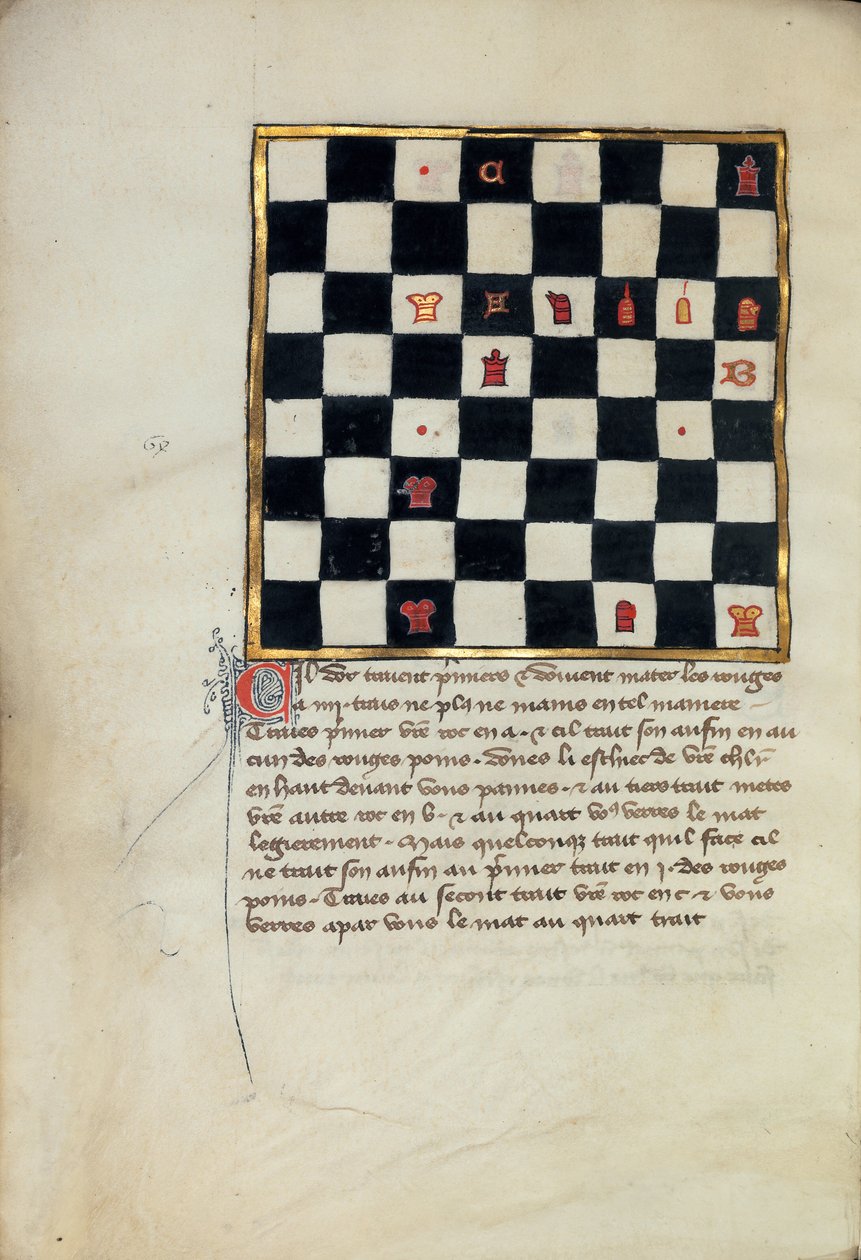 a
A
B
69
Cil dor traient p̄miers ⁊ doivent mater les rouges
a iiij. trais ne plꝰ ne mains en tel maniere
Traies p̄mier vr̄e roc en a. ⁊ cil trait son aufin en au
cun des rouges poins. dones li eschec de vr̄e chlr̄
en haut devant vous pannes. ⁊ au tiers trait metes
vr̄e autre roc en b. ⁊ au quart voꝰ verres le mat
legierement. Mais quelconqz trait quil face cil
ne trait son aufin au p̄mier trait en j. des rouges
poins. Traies au secont trait vr̄e roc en c ⁊ vous
verres apar vous le mat au quart trait